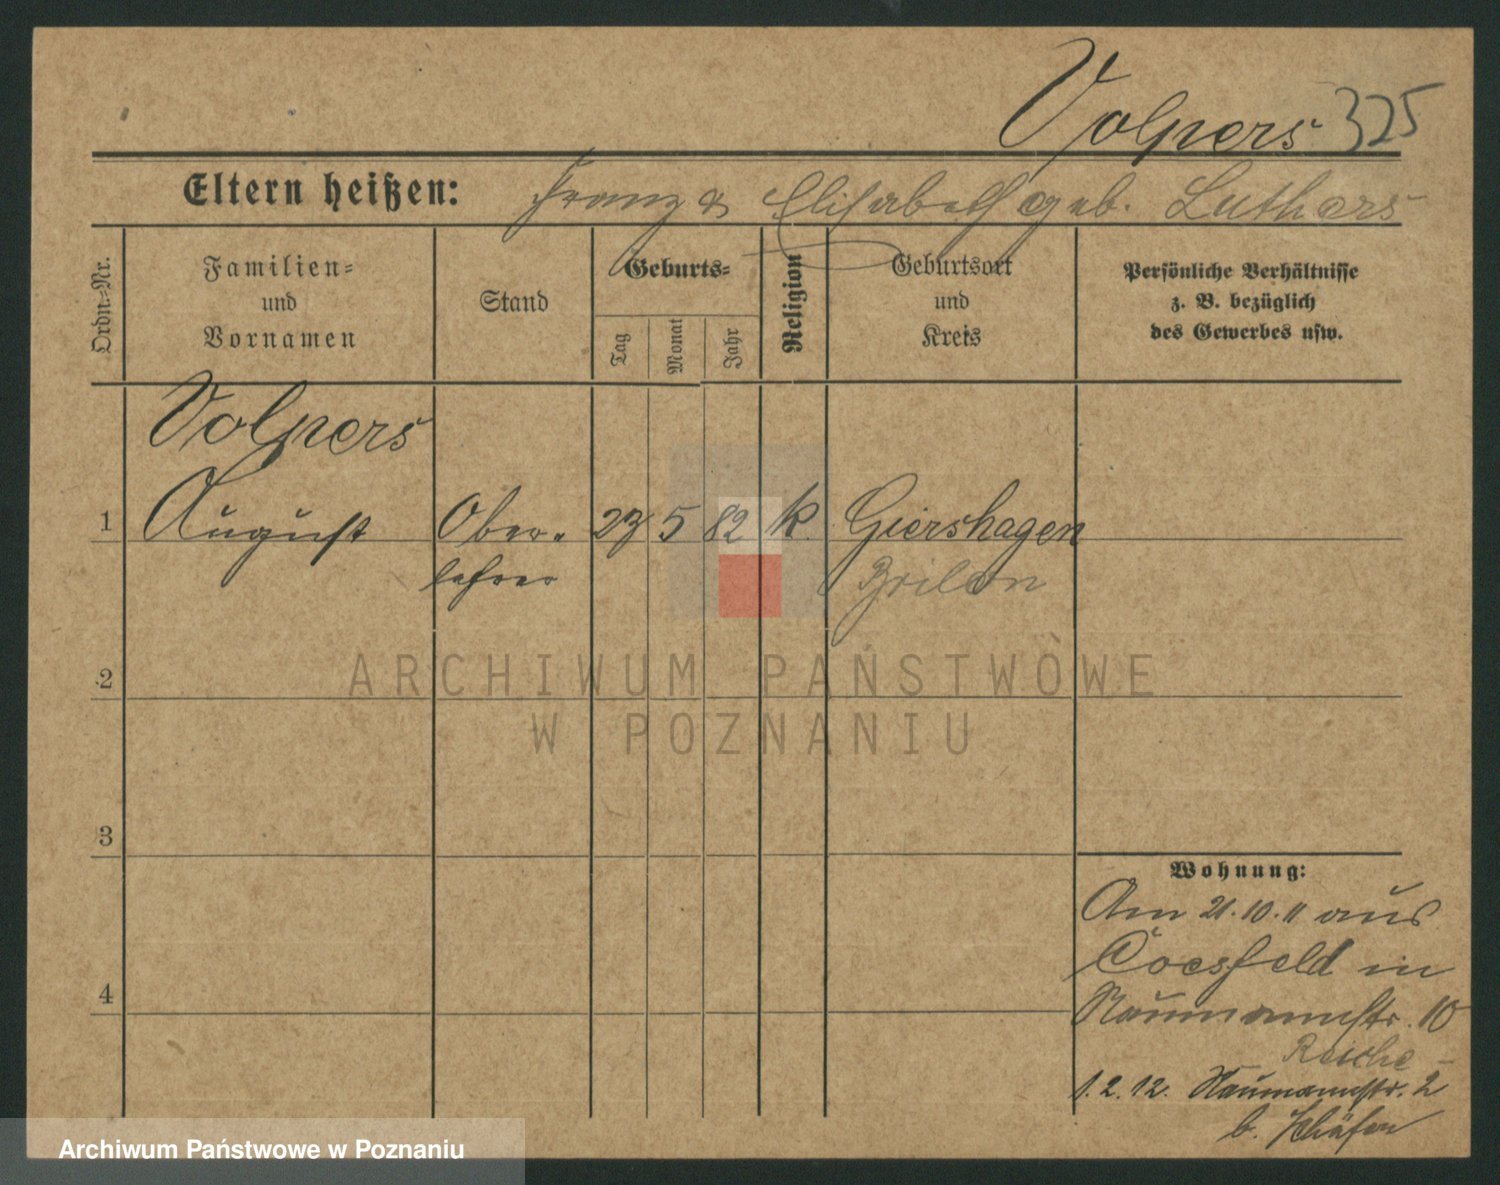 Volpers 325
Eltern heißen: Franz & Elisabeth geb. Luthers
Ordn.-Nr.
Familien-
und
Vornamen
Stand
Geburts-
Tag
Monat
Jahr
Religion
Geburtsort
und
Kreis
Persönliche Verhältnisse
z. B. bezüglich
des Gewerbes usw.
Volpers
1 August Ober- 23 5 82 k. Giershagen
lehrer Brilon
2
3
4
Wohnung:
Am 21.10.11 aus
Coesfeld in
Naumannstr. 10
1.2.12. Naumannstr. 2
b. Schäfer
ARCHIWUM PAŃSTWOWE
W POZNANIU
Archiwum Państwowe w Poznaniu